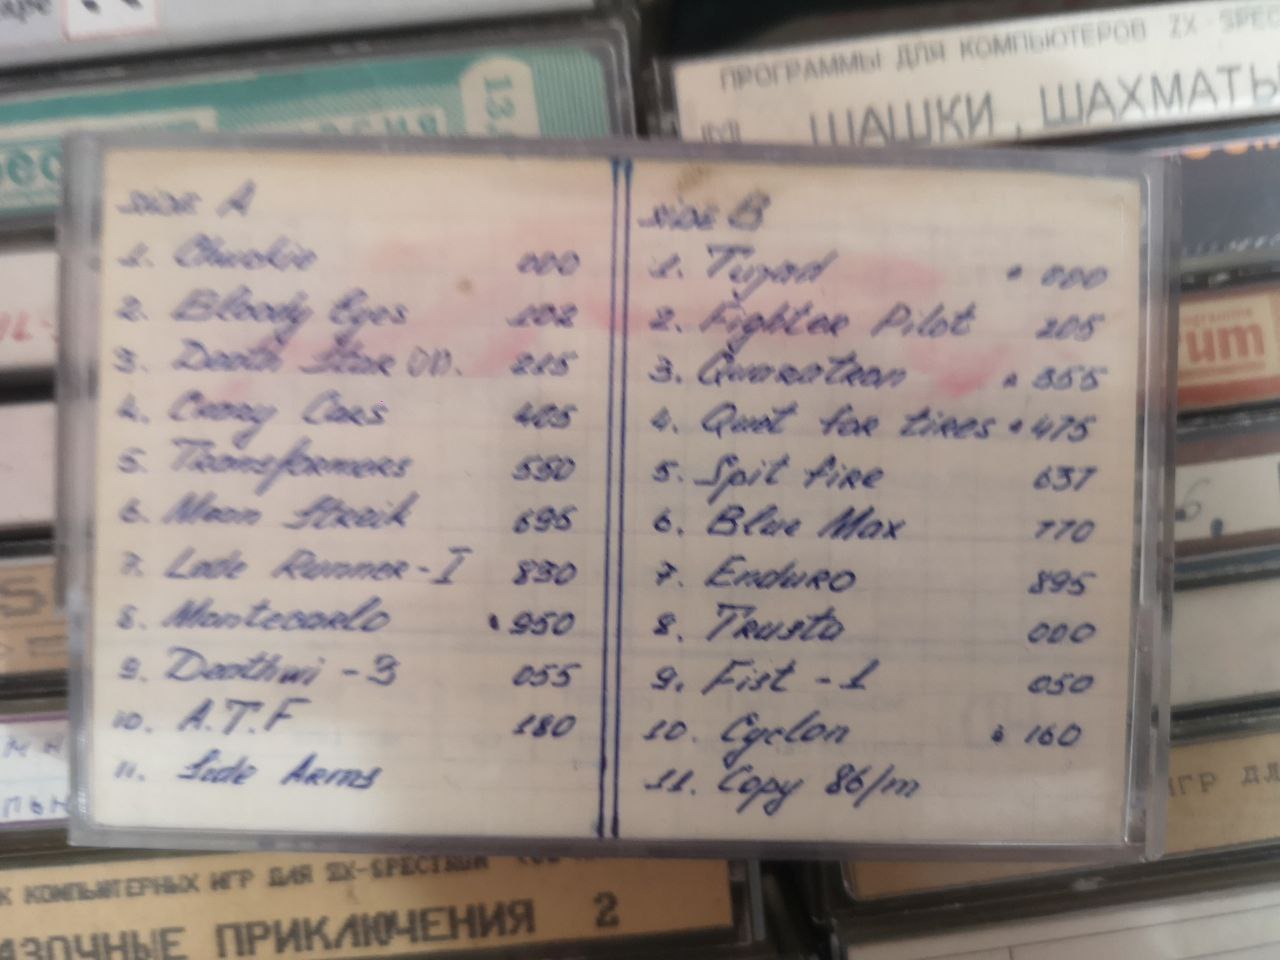 ПРОГРАММЫ ДЛЯ КОМПЬЮТЕРОВ ZX-SPEC
ШАШКИ, ШАХМАТЫ
side A
1. Chuckie 000
2. Bloody Eyes 102
3. Death Star 215
4. Crazy Cars 405
5. Transformers 550
6. Moon Streik 695
7. Lode Runner-I 830
8. Montecarlo 950
9. Deathwi-3 055
10. A.T.F 180
11. Side Arms
side B
1. Tujad 000
2. Fighter Pilot 205
3. Quaratron 355
4. Quet for tires 475
5. Spit fire 637
6. Blue Max 770
7. Enduro 895
8. Trusta 000
9. Fist-1 050
10. Cyclon 160
11. Copy 86/m
rum
ИГР ДЛ
К КОМПЬЮТЕРНЫХ ИГР ДЛЯ ZX-SPECTRUM
АЗОЧНЫЕ ПРИКЛЮЧЕНИЯ 2